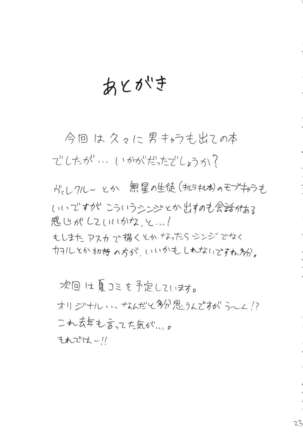 あとがき
今回は久々に男キャラも出ての本
でしたが…いかがだったでしょうか?
ヴィレクルーとか 無星の生徒(キルラキル本)のモブキャラも
いいですが こういうシンジとか出すのも会話がある
感じがしていいかな、と…!
もしまた アスカで描くとかなったらシンジでなく
カヲルとか初時の方が、いいかもしれないですね多分。
次回は夏コミを予定しています。
オリジナル…なんだと多分思うんですが う〜ん!?
これ去年も言ってた気が…。
それでは〜!!
23